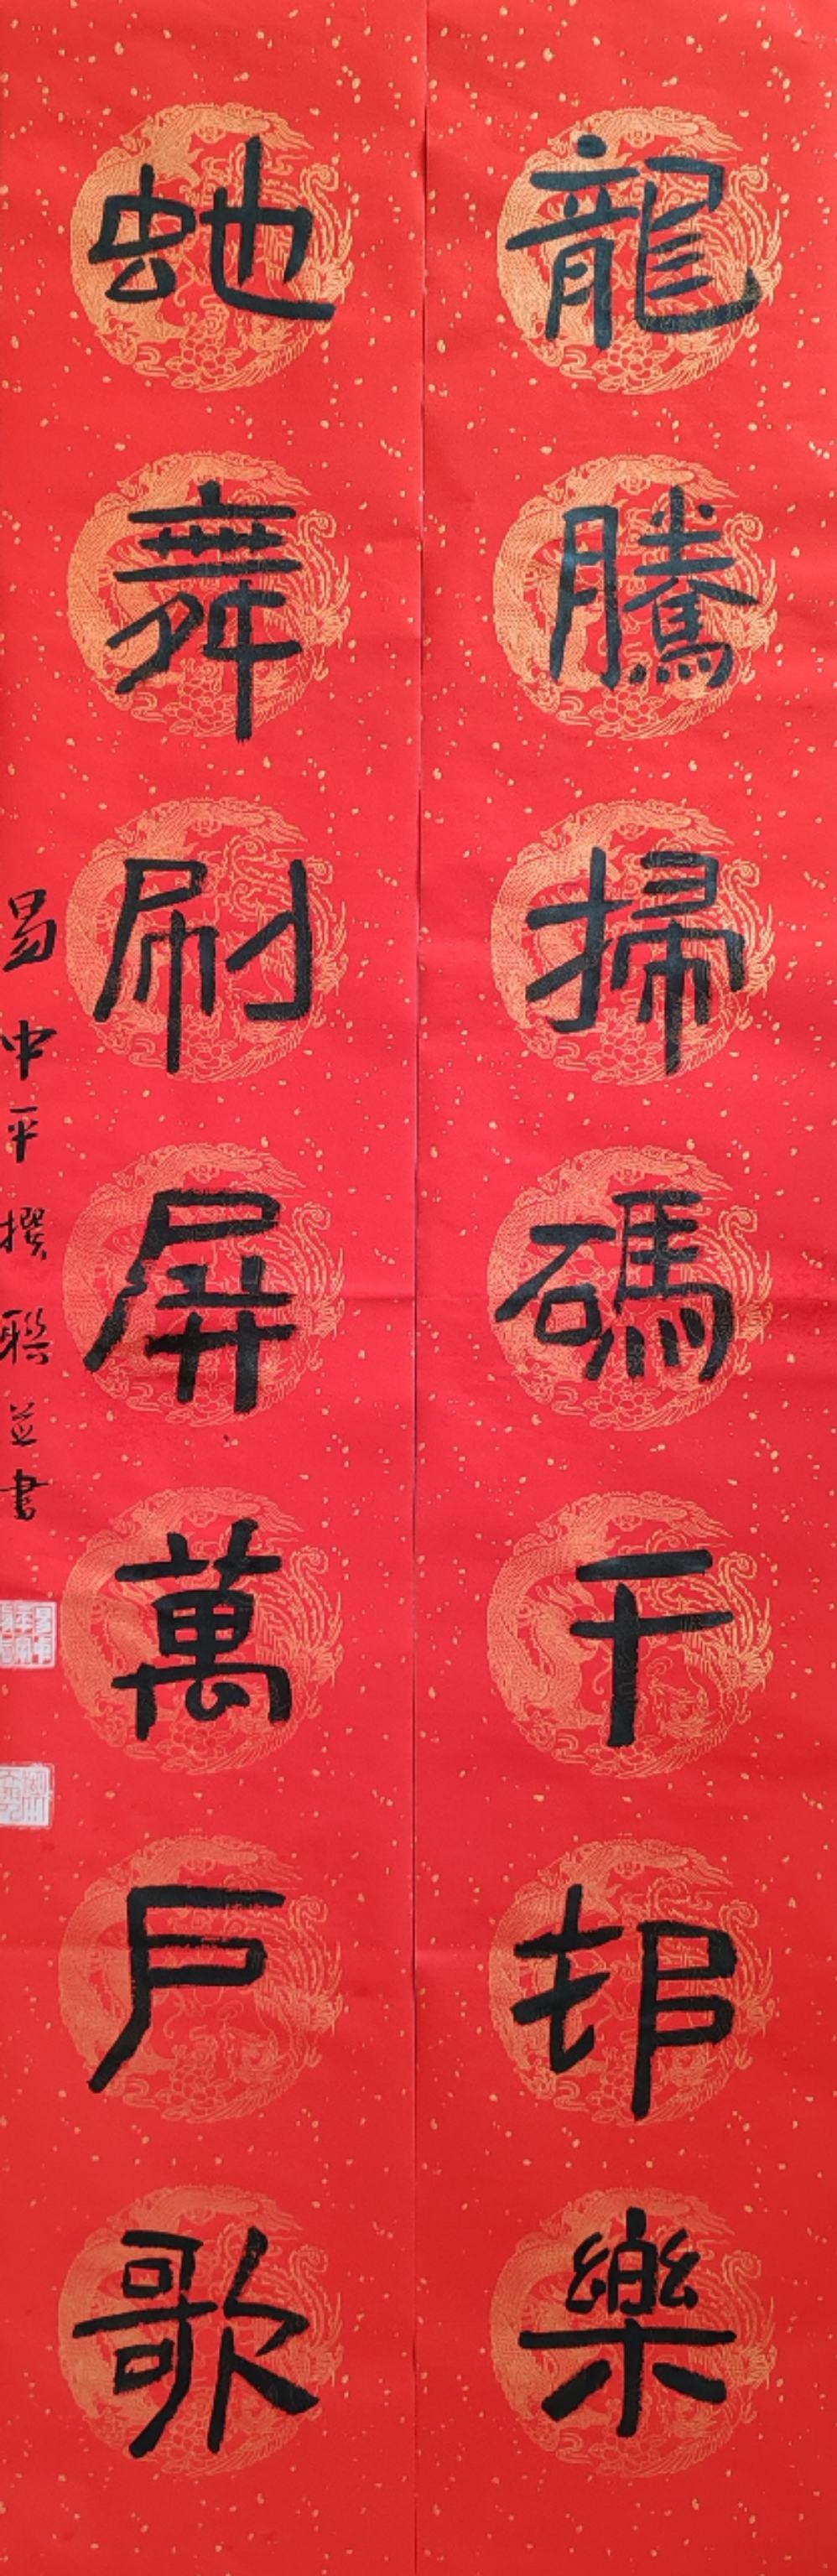 龍騰掃碼千邨樂
蛇舞刷屏萬戶歌
易中平撰聯並書